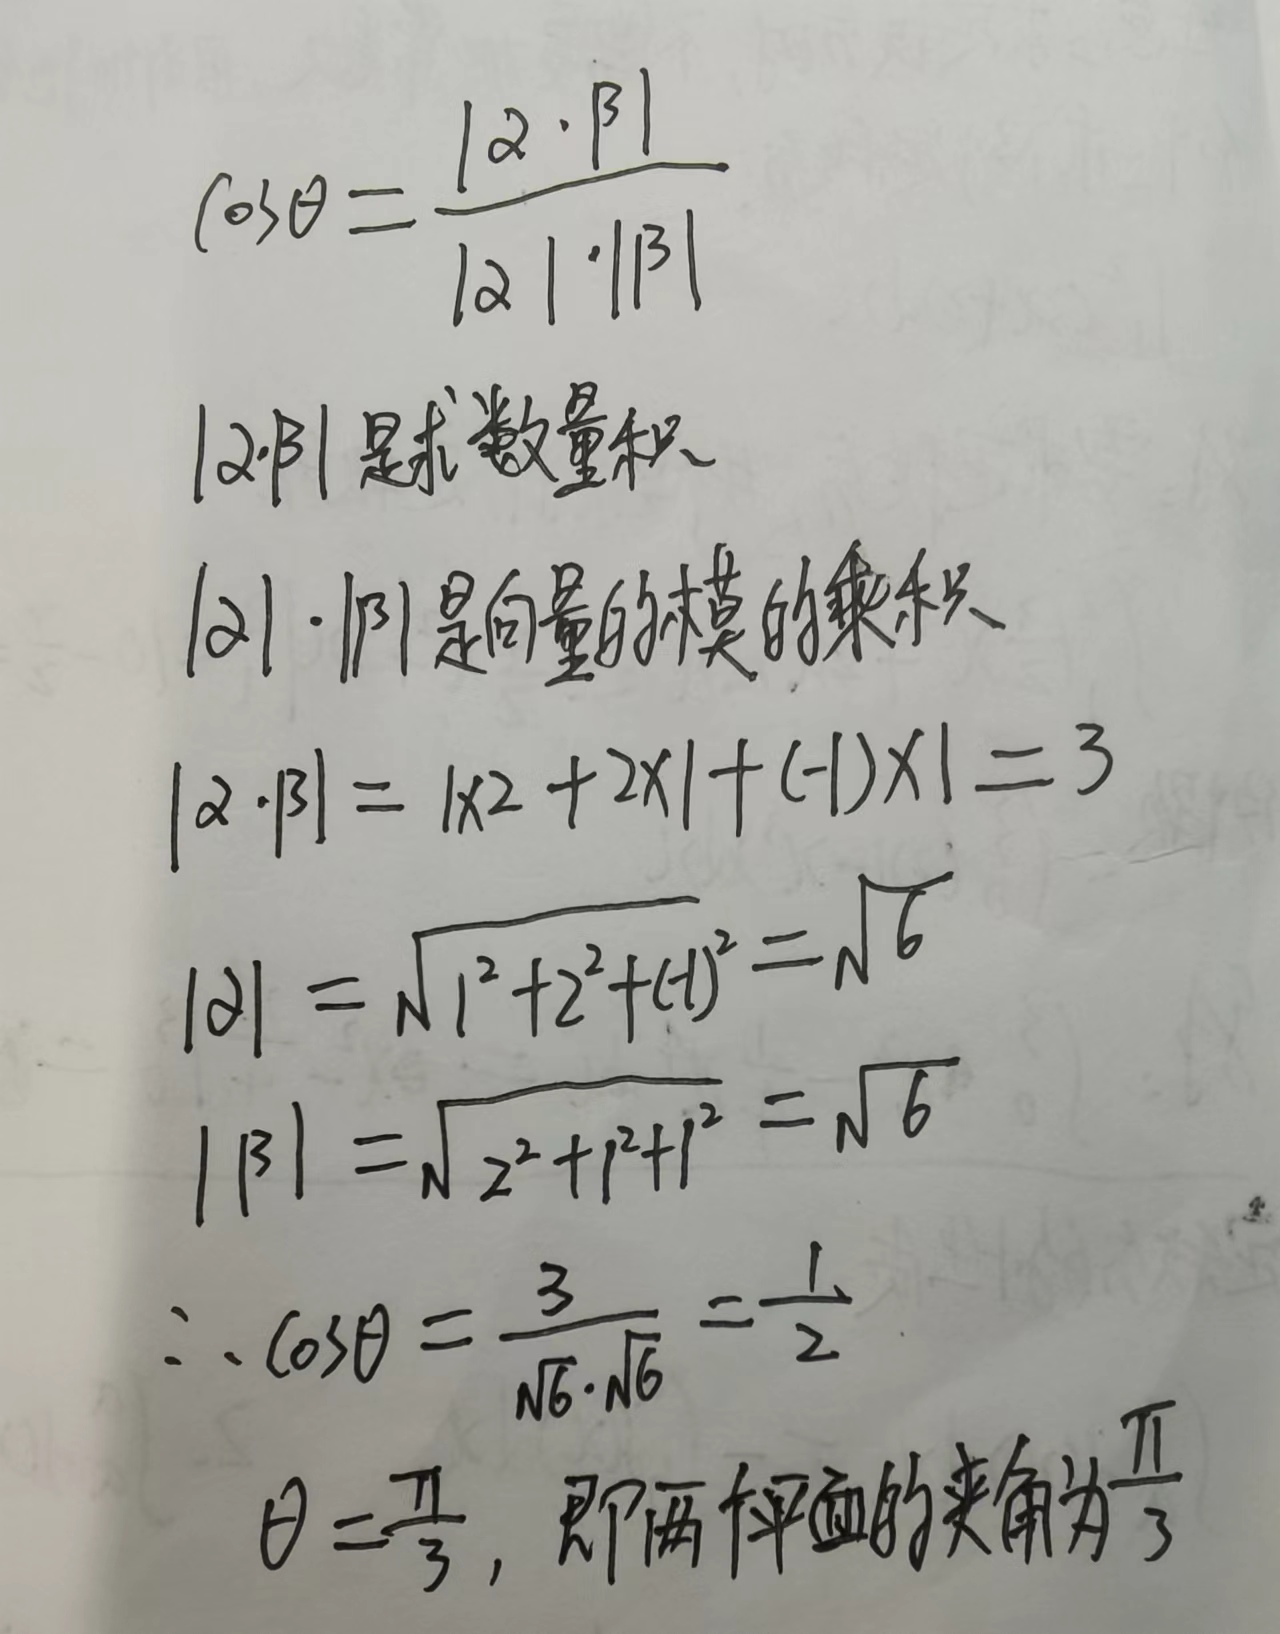 cosθ = |α·β| / |α|·|β|
|α·β| 是求数量积
|α|·|β| 是向量的模的乘积
|α·β| = 1×2 + 2×1 + (-1)×1 = 3
|α| = √(1²+2²+(-1)²) = √6
|β| = √(2²+1²+1²) = √6
∴ cosθ = 3 / √6·√6 = 1/2
θ = π/3, 即两平面的夹角为 π/3